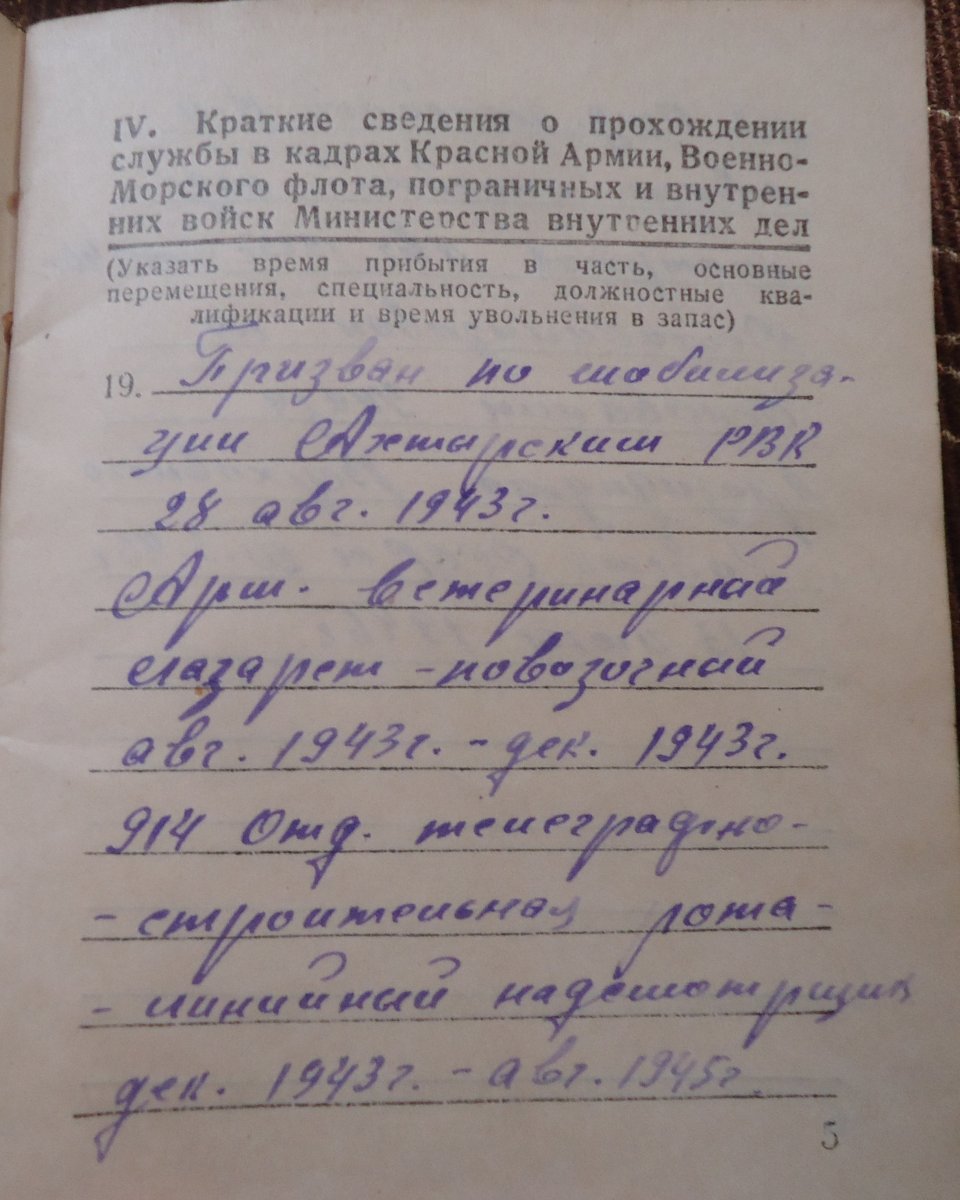 IV. Краткие сведения о прохождении
службы в кадрах Красной Армии, Военно-
Морского флота, пограничных и внутрен-
них войск Министерства внутренних дел
(Указать время прибытия в часть, основные
перемещения, специальность, должностные ква-
лификации и время увольнения в запас)
19. Призван по мобилиза-
ции Ахтарским РВК
28 авг. 1943г.
Арм. ветеринарный
лазарет - повозочный
авг. 1943г. - дек. 1943г.
914 Отд. телеграфно-
- строительная рота -
- линийный надсмотрщик
дек. 1943г. - авг. 1945г
5